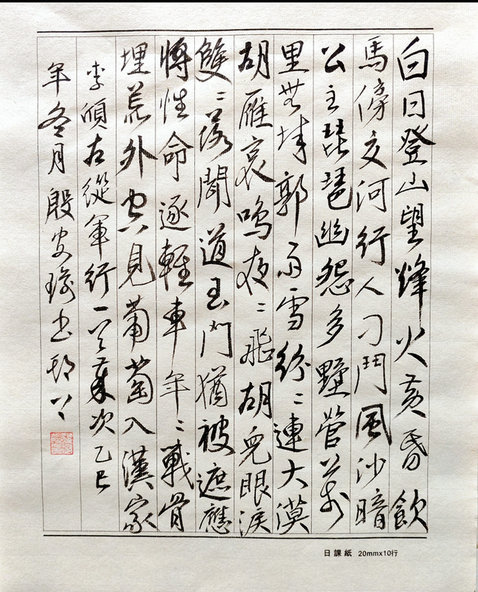 白日登山望烽火黃昏飲
馬傍交河行人刁鬥風沙暗
公主琵琶幽怨多壄營萬
里無城郭雨雪紛〻連大漠
胡雁哀鳴夜〻飛胡兒眼淚
雙〻落聞道玉門猶被遮應
將性命逐輕車年〻戰骨
埋荒外空見葡萄入漢家
李頎古從軍行一首歲次乙巳
年冬月殷
日課紙 20mm×10行